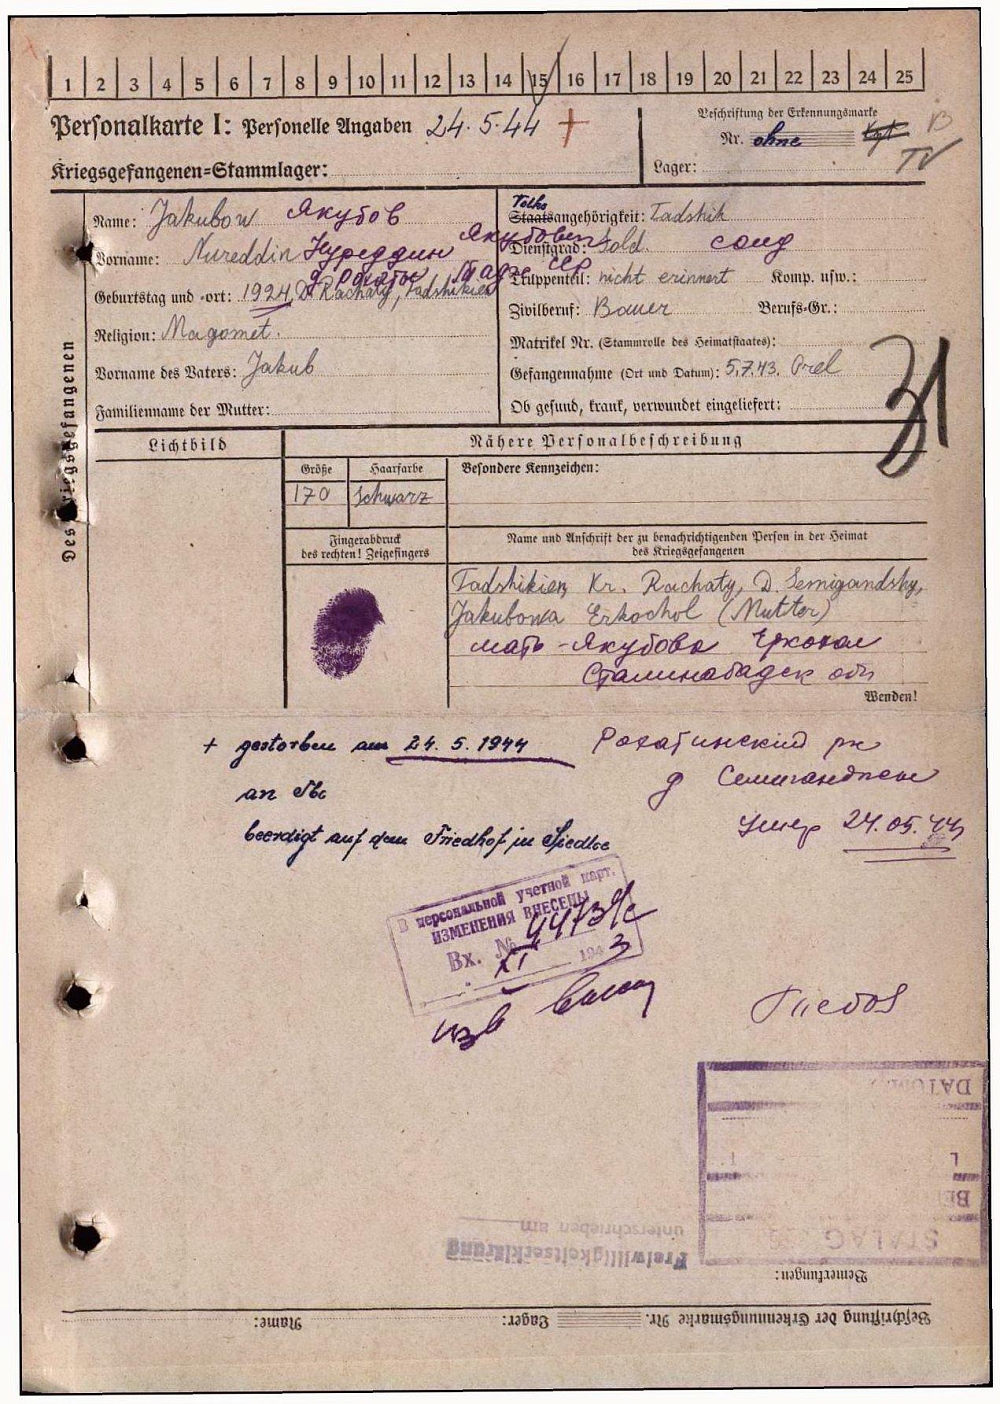 1 2 3 4 5 6 7 8 9 10 11 12 13 14 15 16 17 18 19 20 21 22 23 24 25
Personalkarte I: Personelle Angaben 24.5.44 +
Kriegsgefangenen=Stammlager:
Beschriftung der Erkennungsmarke
Nr. ohne
Lager:
Des Kriegsgefangenen
Name: Jakubow Якубов
Vorname: Nureddin Нуреддин Якубович
Geburtstag und -ort: 1924, D. Rachaty, Tadshikien
Religion: Magomet.
Vorname des Vaters: Jakub
Familienname der Mutter:
Volks
Staatsangehörigkeit: Tadshik
Dienstgrad: Sold. солд
Truppenteil: nicht erinnert Komp. usw.:
Zivilberuf: Bauer Berufs-Gr.:
Matrikel Nr. (Stammrolle des Heimatstaates):
Gefangennahme (Ort und Datum): 5.7.43. Orel
Ob gesund, krank, verwundet eingeliefert:
31
Lichtbild
Nähere Personalbeschreibung
Größe Haarfarbe Besondere Kennzeichen:
170 schwarz
Fingerabdruck
des rechten! Zeigefingers
Name und Anschrift der zu benachrichtigenden Person in der Heimat
des Kriegsgefangenen
Tadshikien, Kr. Rachaty, D. Semigandshy,
Jakubowa Erkochol (Mutter)
мать - Якубова Еркохол
Сталинабадск обл
Wenden!
+ gestorben am 24. 5. 1944
an Tbc
beerdigt auf dem Friedhof in Siedlce
Рохатинский рн
д Семиганджи
Умер 24.05.44
В персональной учетной карт.
ИЗМЕНЕНИЯ ВНЕСЕНЫ
Вх. № 4473
XI 194
Freiwilligkeitserklärung
unterschrieben am
DATUM
STALAG
Bemerkungen:
Beschriftung der Erkennungsmarke Nr. Lager: Name: